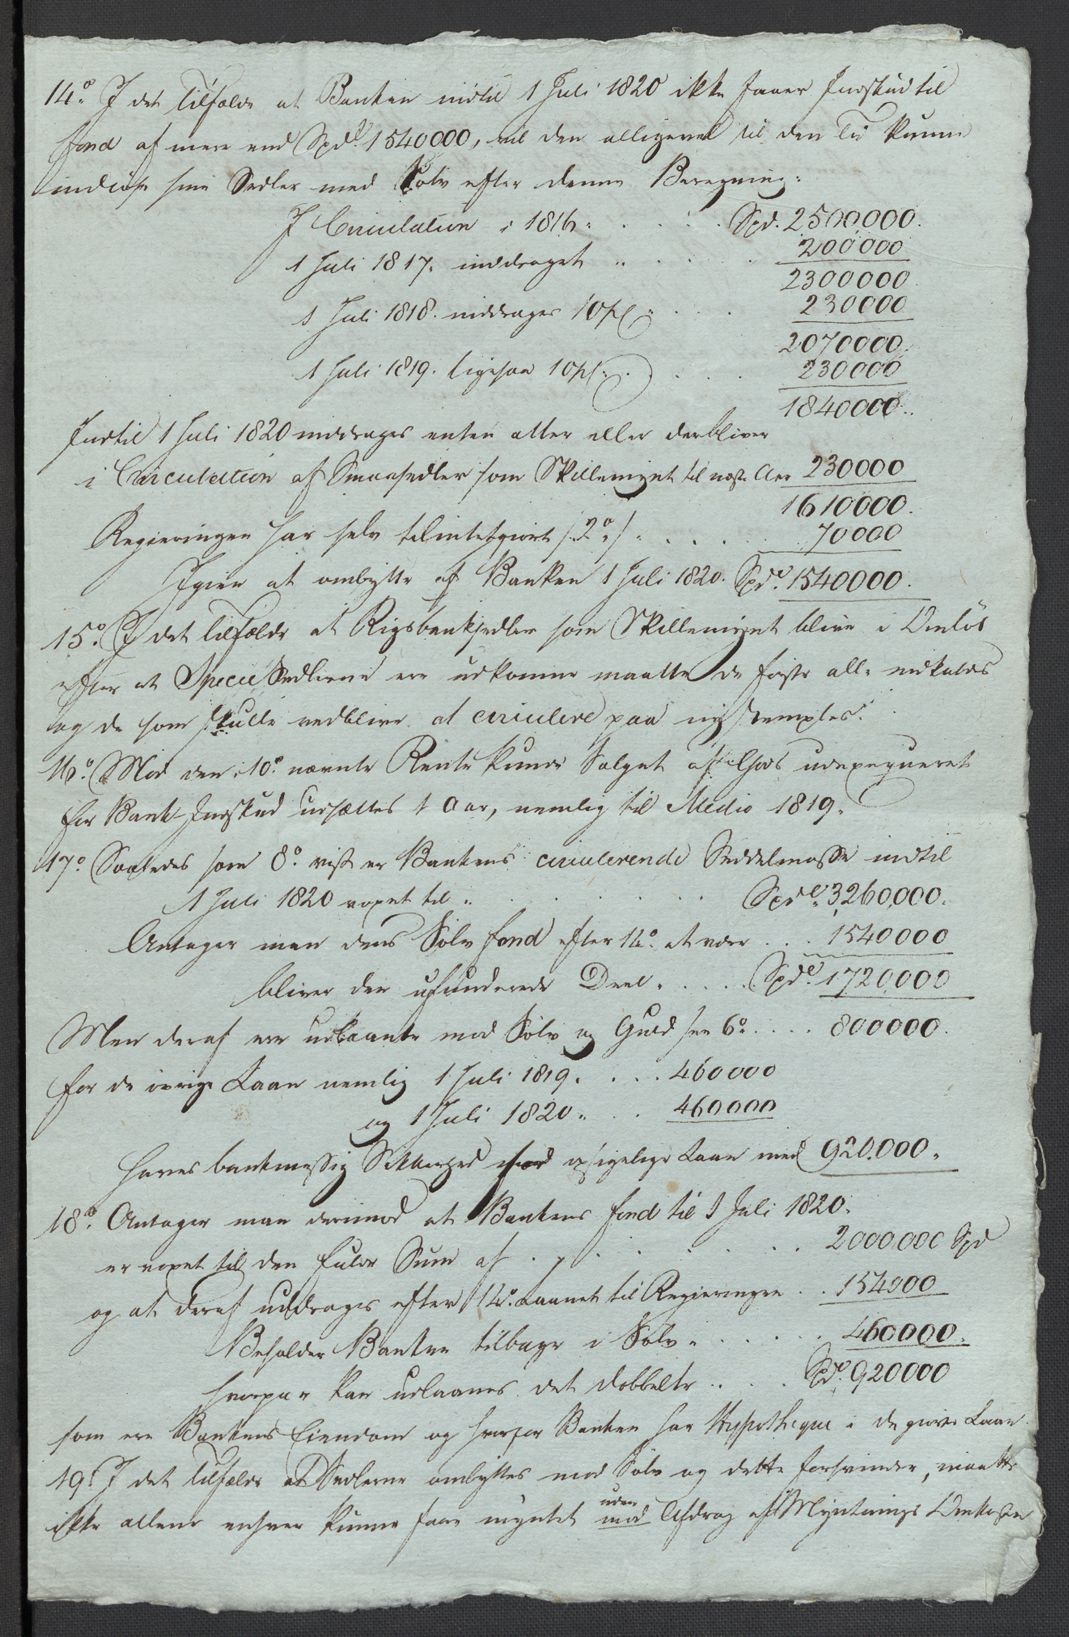 14º. I det Tilfælde at Banken indtil 1 Juli 1820 ikke faaer Indskud til
Fond af mere end Spd. 1540000, vil den alligevel til den Tid kunne
indløse sine Sedler med Sølv efter denne Beregning:
I Circulation i 1816. . . . . Spd. 2500,000.
1 Juli 1817. inddraget . . . . 200000
2300000
1 Juli 1818. inddrages 10 pC. . . . 230000
2070000.
1 Juli 1819. ligesaa 10 pC. . . . 230000
1840000..
Indtil 1 Juli 1820 inddrages enten atter eller der bliver
i Circulation af Smaasedler som Skillemynt til næste Aar 230000
1610000.
Regjeringen har selv tilintetgiort /:2º:/ . . . . 70000
Igien at ombytte af Banken 1 Juli 1820. Spd. 1540000.
15º. I det Tilfælde at Rigsbanksedler som Skillemynt blive i Omløb
efter at Specie Sedlerne ere udkomne maatte de første alle indkaldes
og de som skulle vedblive at circulere paa ny stemples.
16º. Med den i 10º nævnte Rente kunde Salget af Gods udexeqveret
for Bank-Indskud udsættes 1 Aar, nemlig til Medio 1819.
17º. Saaledes som 8º. viist er Bankens circulerende Seddelmasse indtil
1 Juli 1820 voxet til . . . . . Spd. 3,260,000.
Antager man dens Sølv fond efter 14º. at være . . . 1540000
bliver den ufunderede Deel . . . . Spd. 1720,000
Men deraf ere udlaante mod Sølv og Guld see 6º . . . . 800000.
for de øvrige Laan nemlig 1 Juli 1819. . . . 460000
og 1 Juli 1820. . . 460000
haves bankmessig Sikkerhed ved opsigelige Laan med 920,000.
18º. Antager man derimod at Bankens fond til 1 Juli 1820.
er voxet til den fulde Sum af . . . . . . 2000,000 Spd
og at deraf uddrages efter 14º. Laanet til Regieringen . . 154000
Beholder Banken tilbage i Sølv . . . . . 460000.
hvorpaa kan udlaanes det dobbelte . . . Spd. 920000
som ere Bankens Eiendom og hvorfor Banken har Hypotheque i de givne Laan.
19º. I det Tilfælde at Sedlerne ombyttes mod Sølv og dette forsvinder, maatte
uden
ikke allene enhver kunne faae myntet mod Afdrag af Myntnings Omkostn